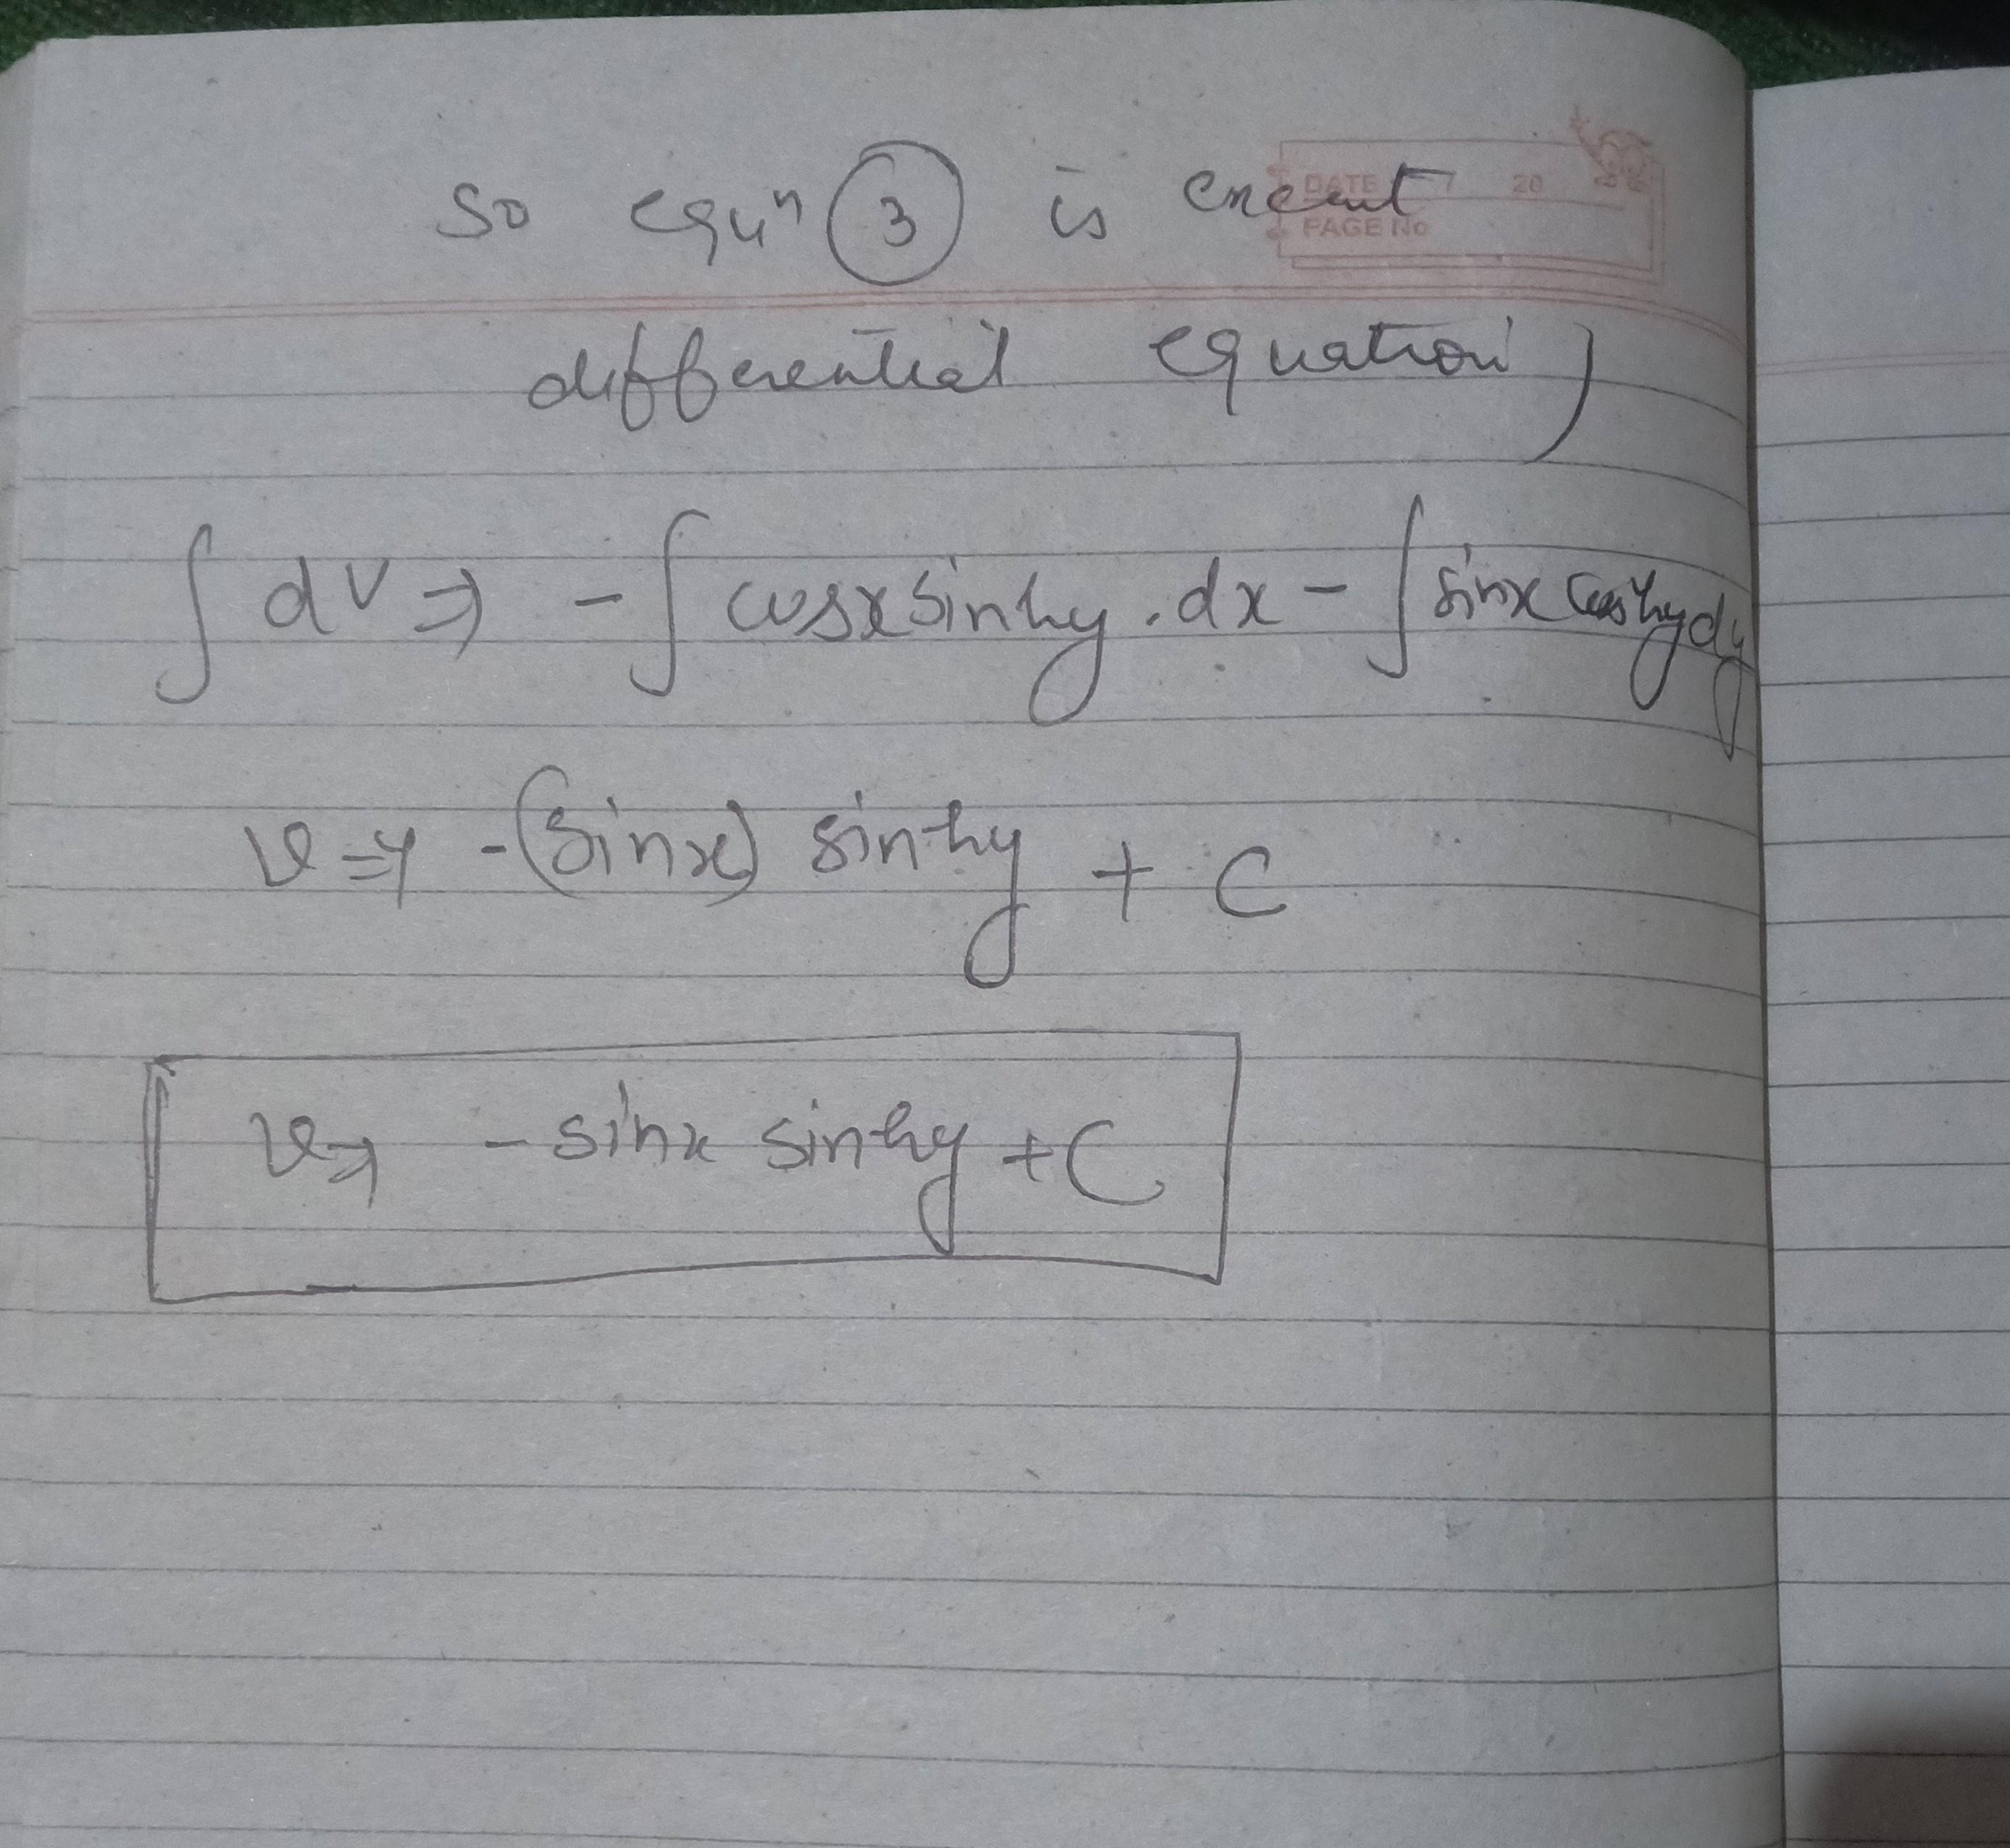 DATE 20
PAGE No
So equⁿ ③ is exact
differential equation)
∫ dv ⇒ - ∫ cosx sinhy . dx - ∫ sinx coshy dy
v ⇒ -(sinx) sinhy + C
v ⇒ - sinx sinhy + C